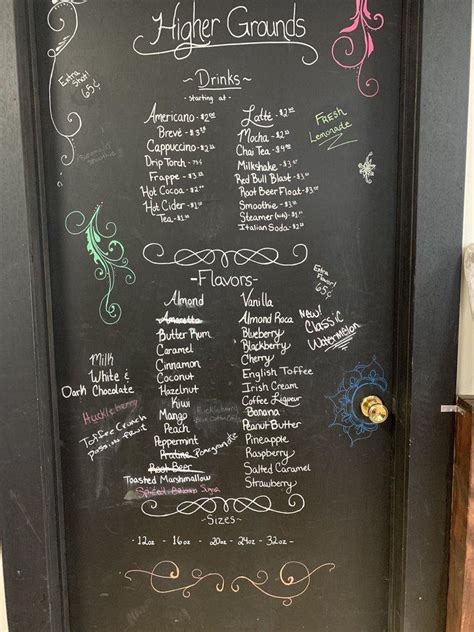 Higher Grounds
~Drinks~
- starting at -
Extra
Shot!
65¢
Americano - $2
Brevé -
Cappuccino -
Drip Torch - 75¢
Frappe -
Hot Cocoa -
Hot Cider -
Tea -
Latté -
Mocha -
Chai Tea -
Milkshake -
Red Bull Blast -
Root Beer Float -
Smoothie -
Steamer (N/A) -
Italian Soda -
FRESH
Lemonade
-Flavors-
Extra
Flavor!
65¢
Almond
Amaretto
Butter Rum
Caramel
Cinnamon
Coconut
Hazelnut
Kiwi
Mango
Peach
Peppermint
Praline Pomegranate
Root Beer
Toasted Marshmallow
Spiced Brown Sugar
Vanilla
Almond Roca
Blueberry
Blackberry
Cherry
English Toffee
Irish Cream
Coffee Liqueur
Banana
Peanut Butter
Pineapple
Raspberry
Salted Caramel
Strawberry
New!
Classic
Watermelon
Milk
White &
Dark Chocolate
Huckleberry
Toffee Crunch
Passion Fruit
-Sizes-
- 12oz - 16oz - 20oz - 24oz - 32oz -